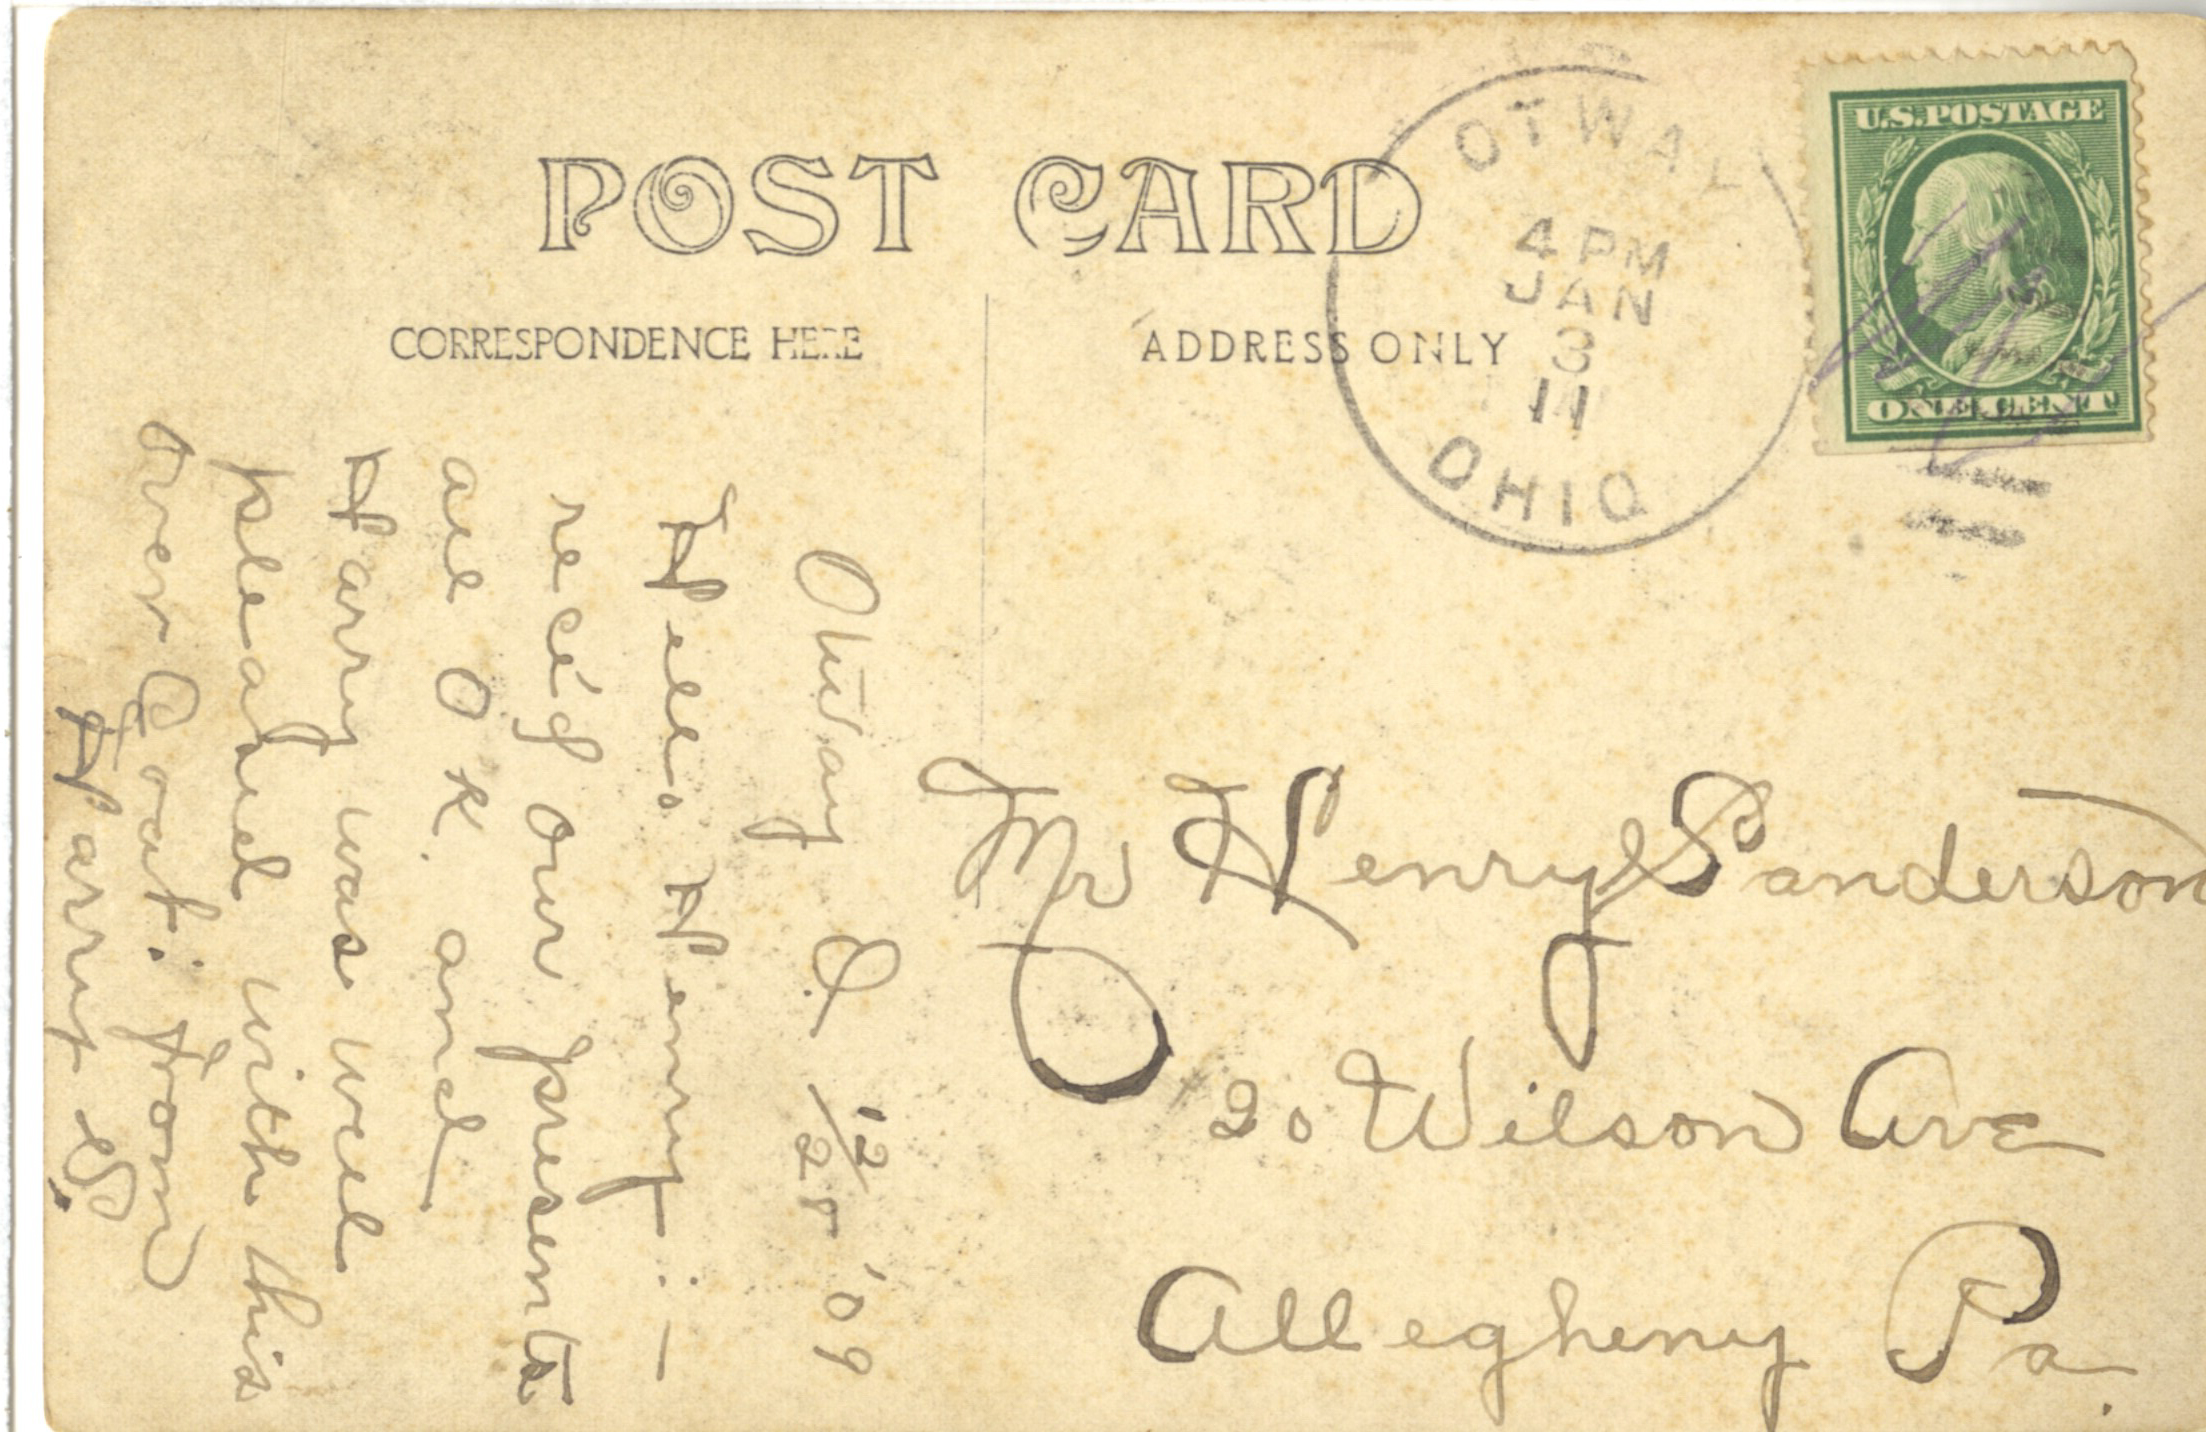 POST CARD
CORRESPONDENCE HERE
ADDRESS ONLY
OTWAY
4 PM
JAN
3
11
OHIO
U.S. POSTAGE
ONE CENT
Otway O. 12/28 '09
Hello Henry:—
rec'd our presents
all OK. and
Harry was well
pleased with this
over Coat: from
Harry S.
Mr Henry Sanderson
20 Wilson Ave
Allegheny Pa.